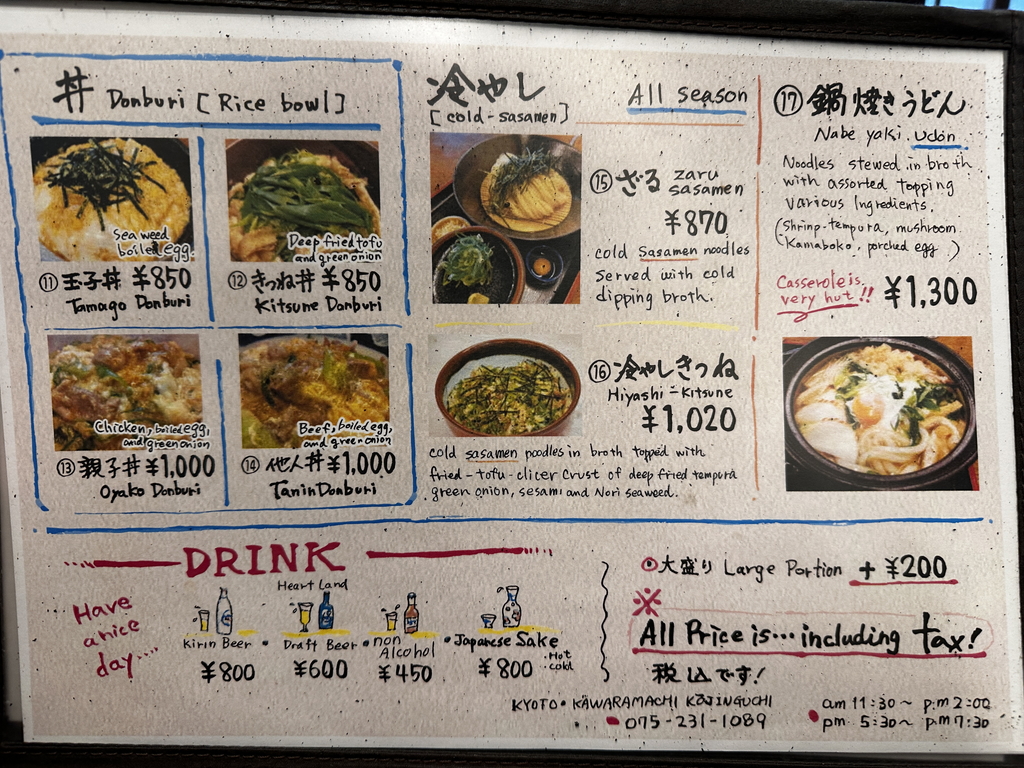 丼 Donburi [Rice bowl]
Sea weed
boiled egg.
⑪ 玉子丼 ¥850
Tamago Donburi
Deep fried tofu
and green onion
⑫ きつね丼 ¥850
Kitsune Donburi
Chicken, boiled egg,
and green onion
⑬ 親子丼 ¥1,000
Oyako Donburi
Beef, boiled egg,
and green onion
⑭ 他人丼 ¥1,000
Tanin Donburi
冷やし All season
[cold-sasamen]
⑮ ざる zaru
sasamen
¥870
cold Sasamen noodles
Served with cold
dipping broth.
⑯ 冷やしきつね
Hiyashi-Kitsune
¥1,020
cold sasamen noodles in broth topped with
fried-tofu-clicer Crust of deep fried tempura
green onion, sesami and Nori seaweed.
⑰ 鍋焼きうどん
Nabe yaki Udon
Noodles stewed in broth
with assorted topping
various Ingredients.
(Shrimp-tempura, mushroom
Kamaboko, porched egg )
Casserole is
very hut!! ¥1,300
DRINK
Have
a nice
day....
Kirin Beer
¥800
Heart Land
Draft Beer
¥600
non
Alcohol
¥450
Japanese Sake
¥800 ・Hot
・cold
大盛り Large Portion + ¥200
※
All Price is...including tax!
税込です!
KYOTO・KAWARAMACHI KOJINGUCHI
075-231-1089
am 11:30～ pm 2:00
pm 5:30～ pm 7:30